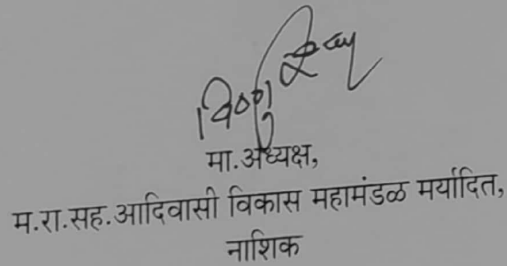 मा.अध्यक्ष,
म.रा.सह.आदिवासी विकास महामंडळ मर्यादित,
नाशिक